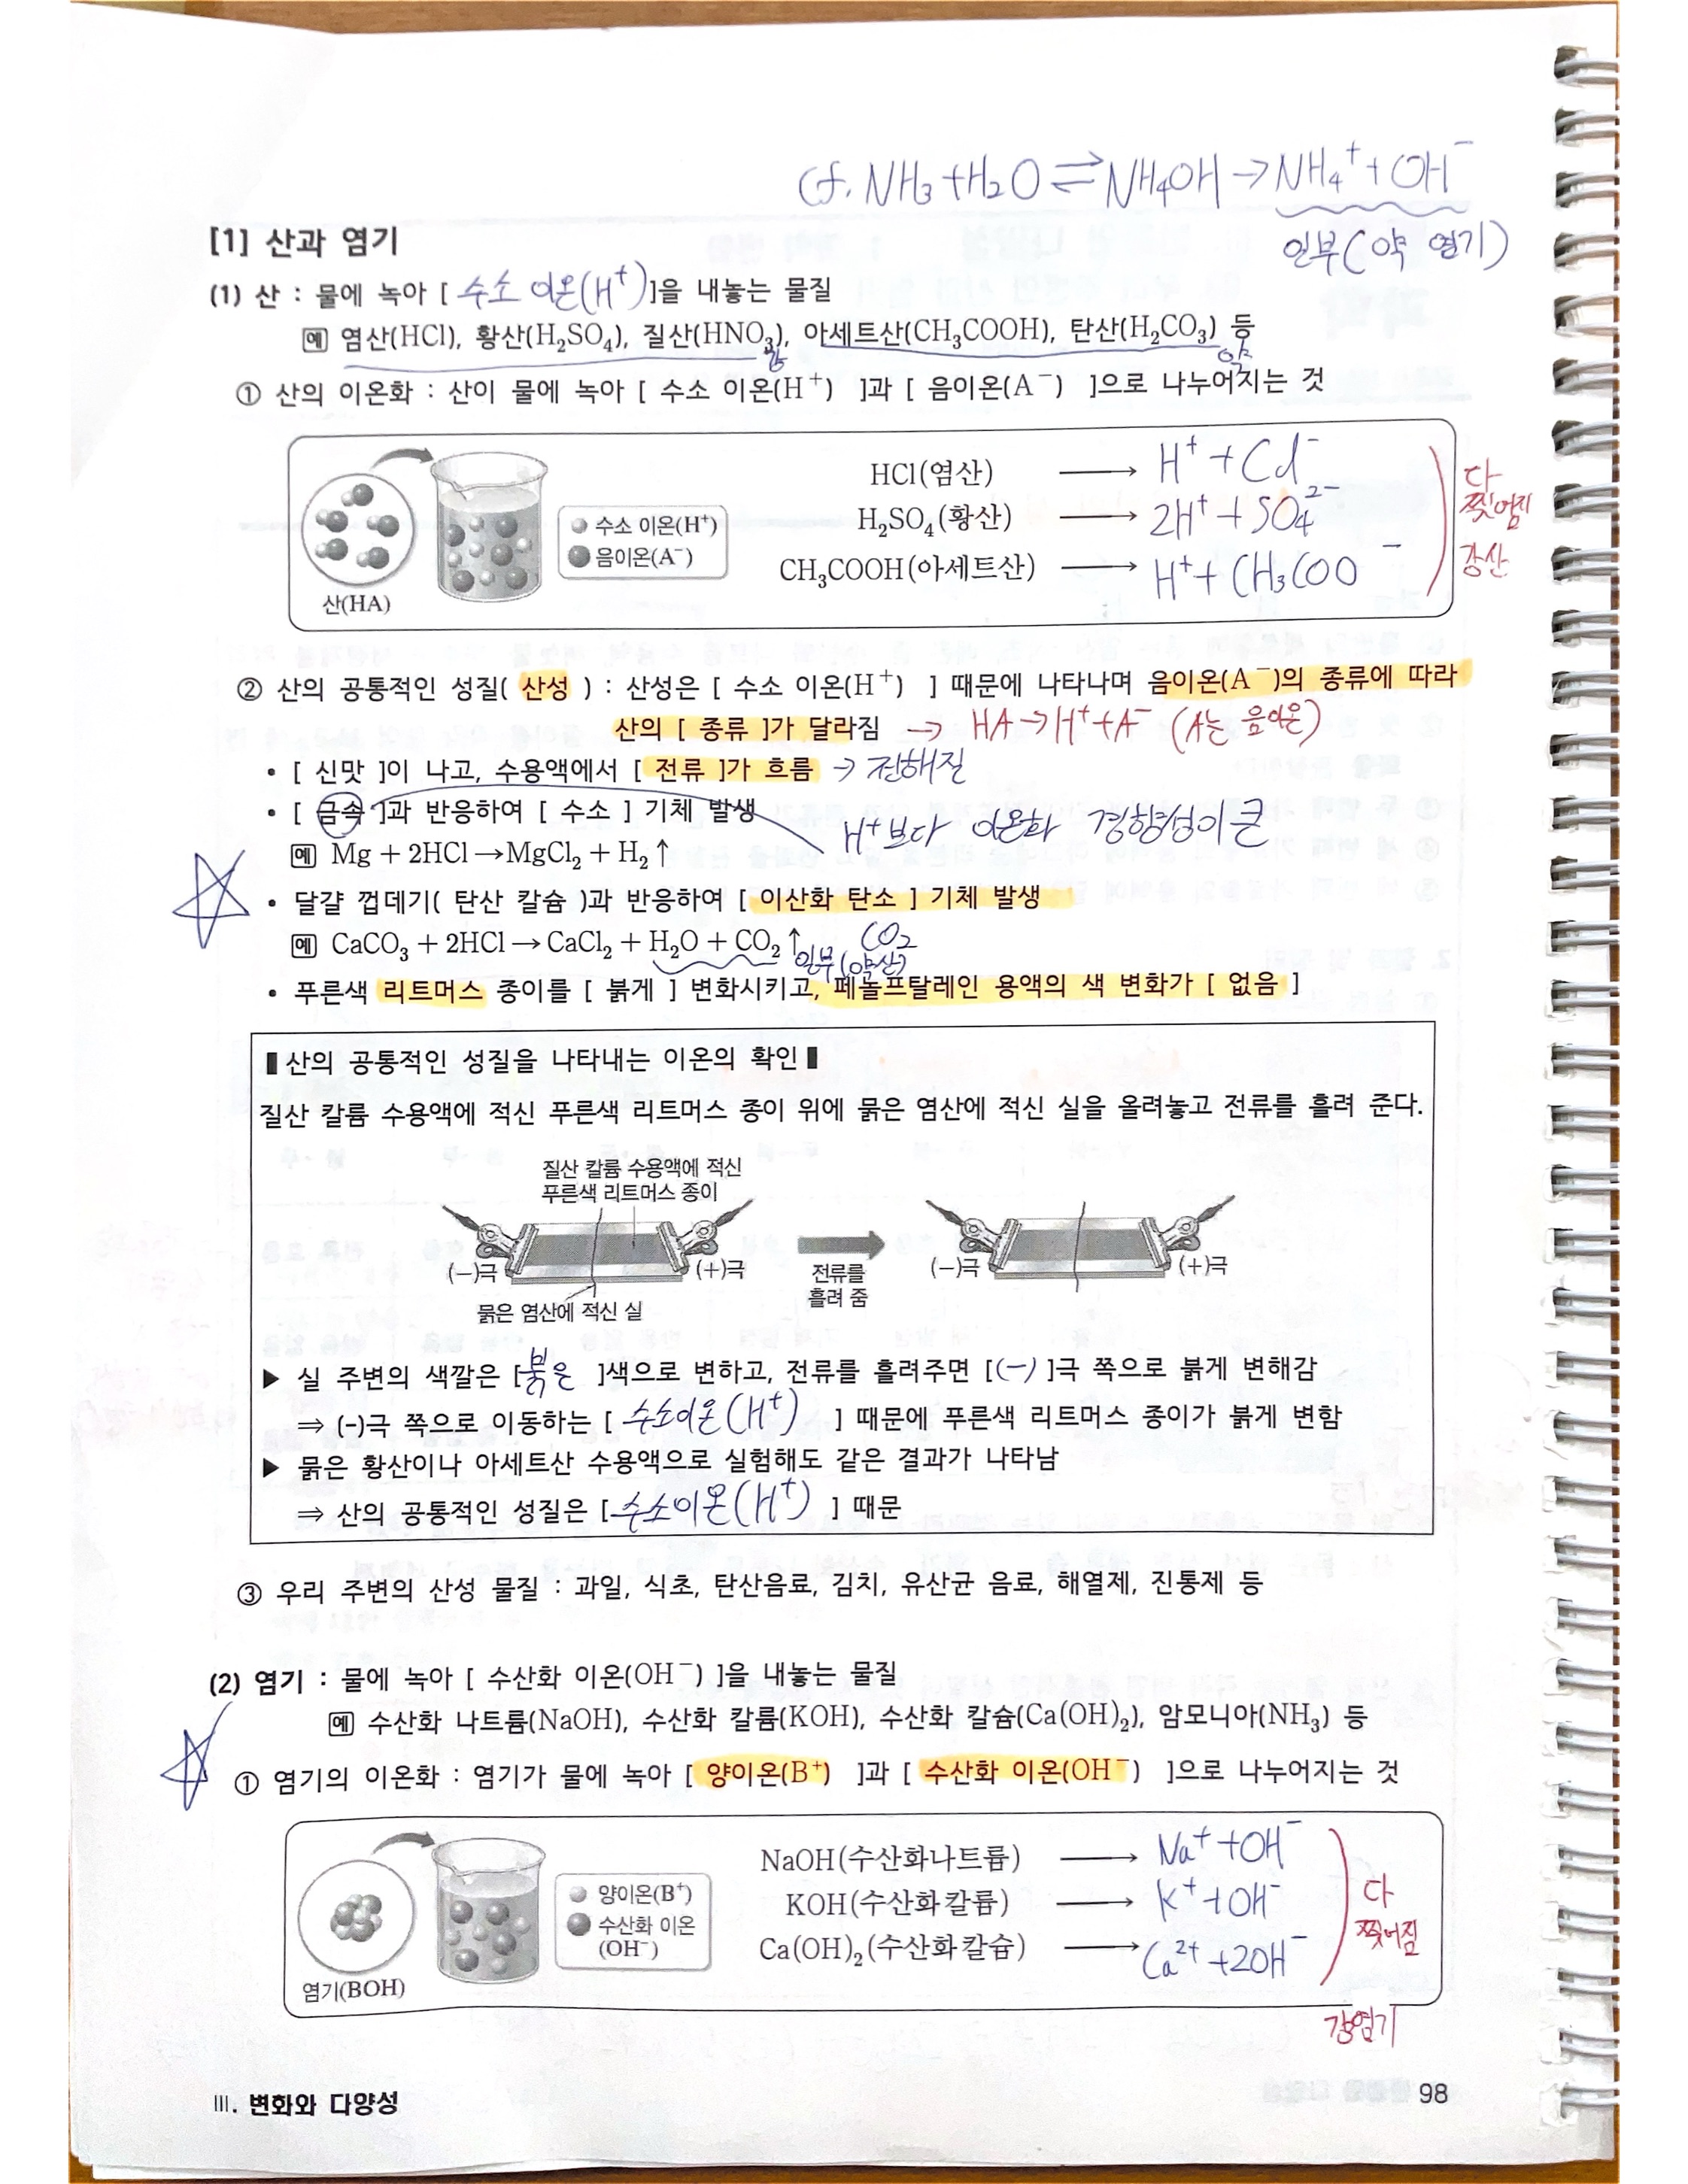 cf. NH₃ + H₂O ⇌ NH₄OH → NH₄⁺ + OH⁻
일부(약 염기)
[1] 산과 염기
(1) 산 : 물에 녹아 [ 수소 이온(H⁺) ]을 내놓는 물질
예 염산(HCl), 황산(H₂SO₄), 질산(HNO₃), 아세트산(CH₃COOH), 탄산(H₂CO₃) 등
강
약
① 산의 이온화 : 산이 물에 녹아 [ 수소 이온(H⁺) ]과 [ 음이온(A⁻) ]으로 나누어지는 것
HCl(염산) → H⁺ + Cl⁻
H₂SO₄(황산) → 2H⁺ + SO₄²⁻
CH₃COOH(아세트산) → H⁺ + CH₃COO⁻
다
찢어짐
강산
수소 이온(H⁺)
음이온(A⁻)
산(HA)
② 산의 공통적인 성질( 산성 ) : 산성은 [ 수소 이온(H⁺) ] 때문에 나타나며 음이온(A⁻)의 종류에 따라
산의 [ 종류 ]가 달라짐 → HA → H⁺ + A⁻ (A는 음이온)
• [ 신맛 ]이 나고, 수용액에서 [ 전류 ]가 흐름 → 전해질
• [ 금속 ]과 반응하여 [ 수소 ] 기체 발생
H⁺보다 이온화 경향성이 큰
예 Mg + 2HCl → MgCl₂ + H₂↑
• 달걀 껍데기( 탄산 칼슘 )과 반응하여 [ 이산화 탄소 ] 기체 발생
예 CaCO₃ + 2HCl → CaCl₂ + H₂O + CO₂↑ CO₂
일부(약산)
• 푸른색 리트머스 종이를 [ 붉게 ] 변화시키고, 페놀프탈레인 용액의 색 변화가 [ 없음 ]
▌산의 공통적인 성질을 나타내는 이온의 확인▐
질산 칼륨 수용액에 적신 푸른색 리트머스 종이 위에 묽은 염산에 적신 실을 올려놓고 전류를 흘려 준다.
질산 칼륨 수용액에 적신
푸른색 리트머스 종이
(−)극 (+)극
묽은 염산에 적신 실
전류를
흘려 줌
(−)극 (+)극
▶ 실 주변의 색깔은 [ 붉은 ]색으로 변하고, 전류를 흘려주면 [ (−) ]극 쪽으로 붉게 변해감
⇒ (-)극 쪽으로 이동하는 [ 수소이온(H⁺) ] 때문에 푸른색 리트머스 종이가 붉게 변함
▶ 묽은 황산이나 아세트산 수용액으로 실험해도 같은 결과가 나타남
⇒ 산의 공통적인 성질은 [ 수소이온(H⁺) ] 때문
③ 우리 주변의 산성 물질 : 과일, 식초, 탄산음료, 김치, 유산균 음료, 해열제, 진통제 등
(2) 염기 : 물에 녹아 [ 수산화 이온(OH⁻) ]을 내놓는 물질
예 수산화 나트륨(NaOH), 수산화 칼륨(KOH), 수산화 칼슘(Ca(OH)₂), 암모니아(NH₃) 등
① 염기의 이온화 : 염기가 물에 녹아 [ 양이온(B⁺) ]과 [ 수산화 이온(OH⁻) ]으로 나누어지는 것
NaOH(수산화나트륨) → Na⁺ + OH⁻
KOH(수산화칼륨) → K⁺ + OH⁻
Ca(OH)₂(수산화칼슘) → Ca²⁺ + 2OH⁻
다
찢어짐
강염기
양이온(B⁺)
수산화 이온
(OH⁻)
염기(BOH)
Ⅲ. 변화와 다양성
98